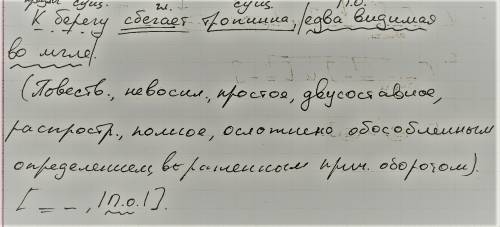 сущ. гл. сущ. П.О.
К берегу сбегает тропинка, |едва видимая
во мгле|.
(Повеств., невоскл., простое, двусоставное,
распростр., полное, осложнено обособленным
определением, выраженным прич. оборотом).
[ = – , |П.О.| ].